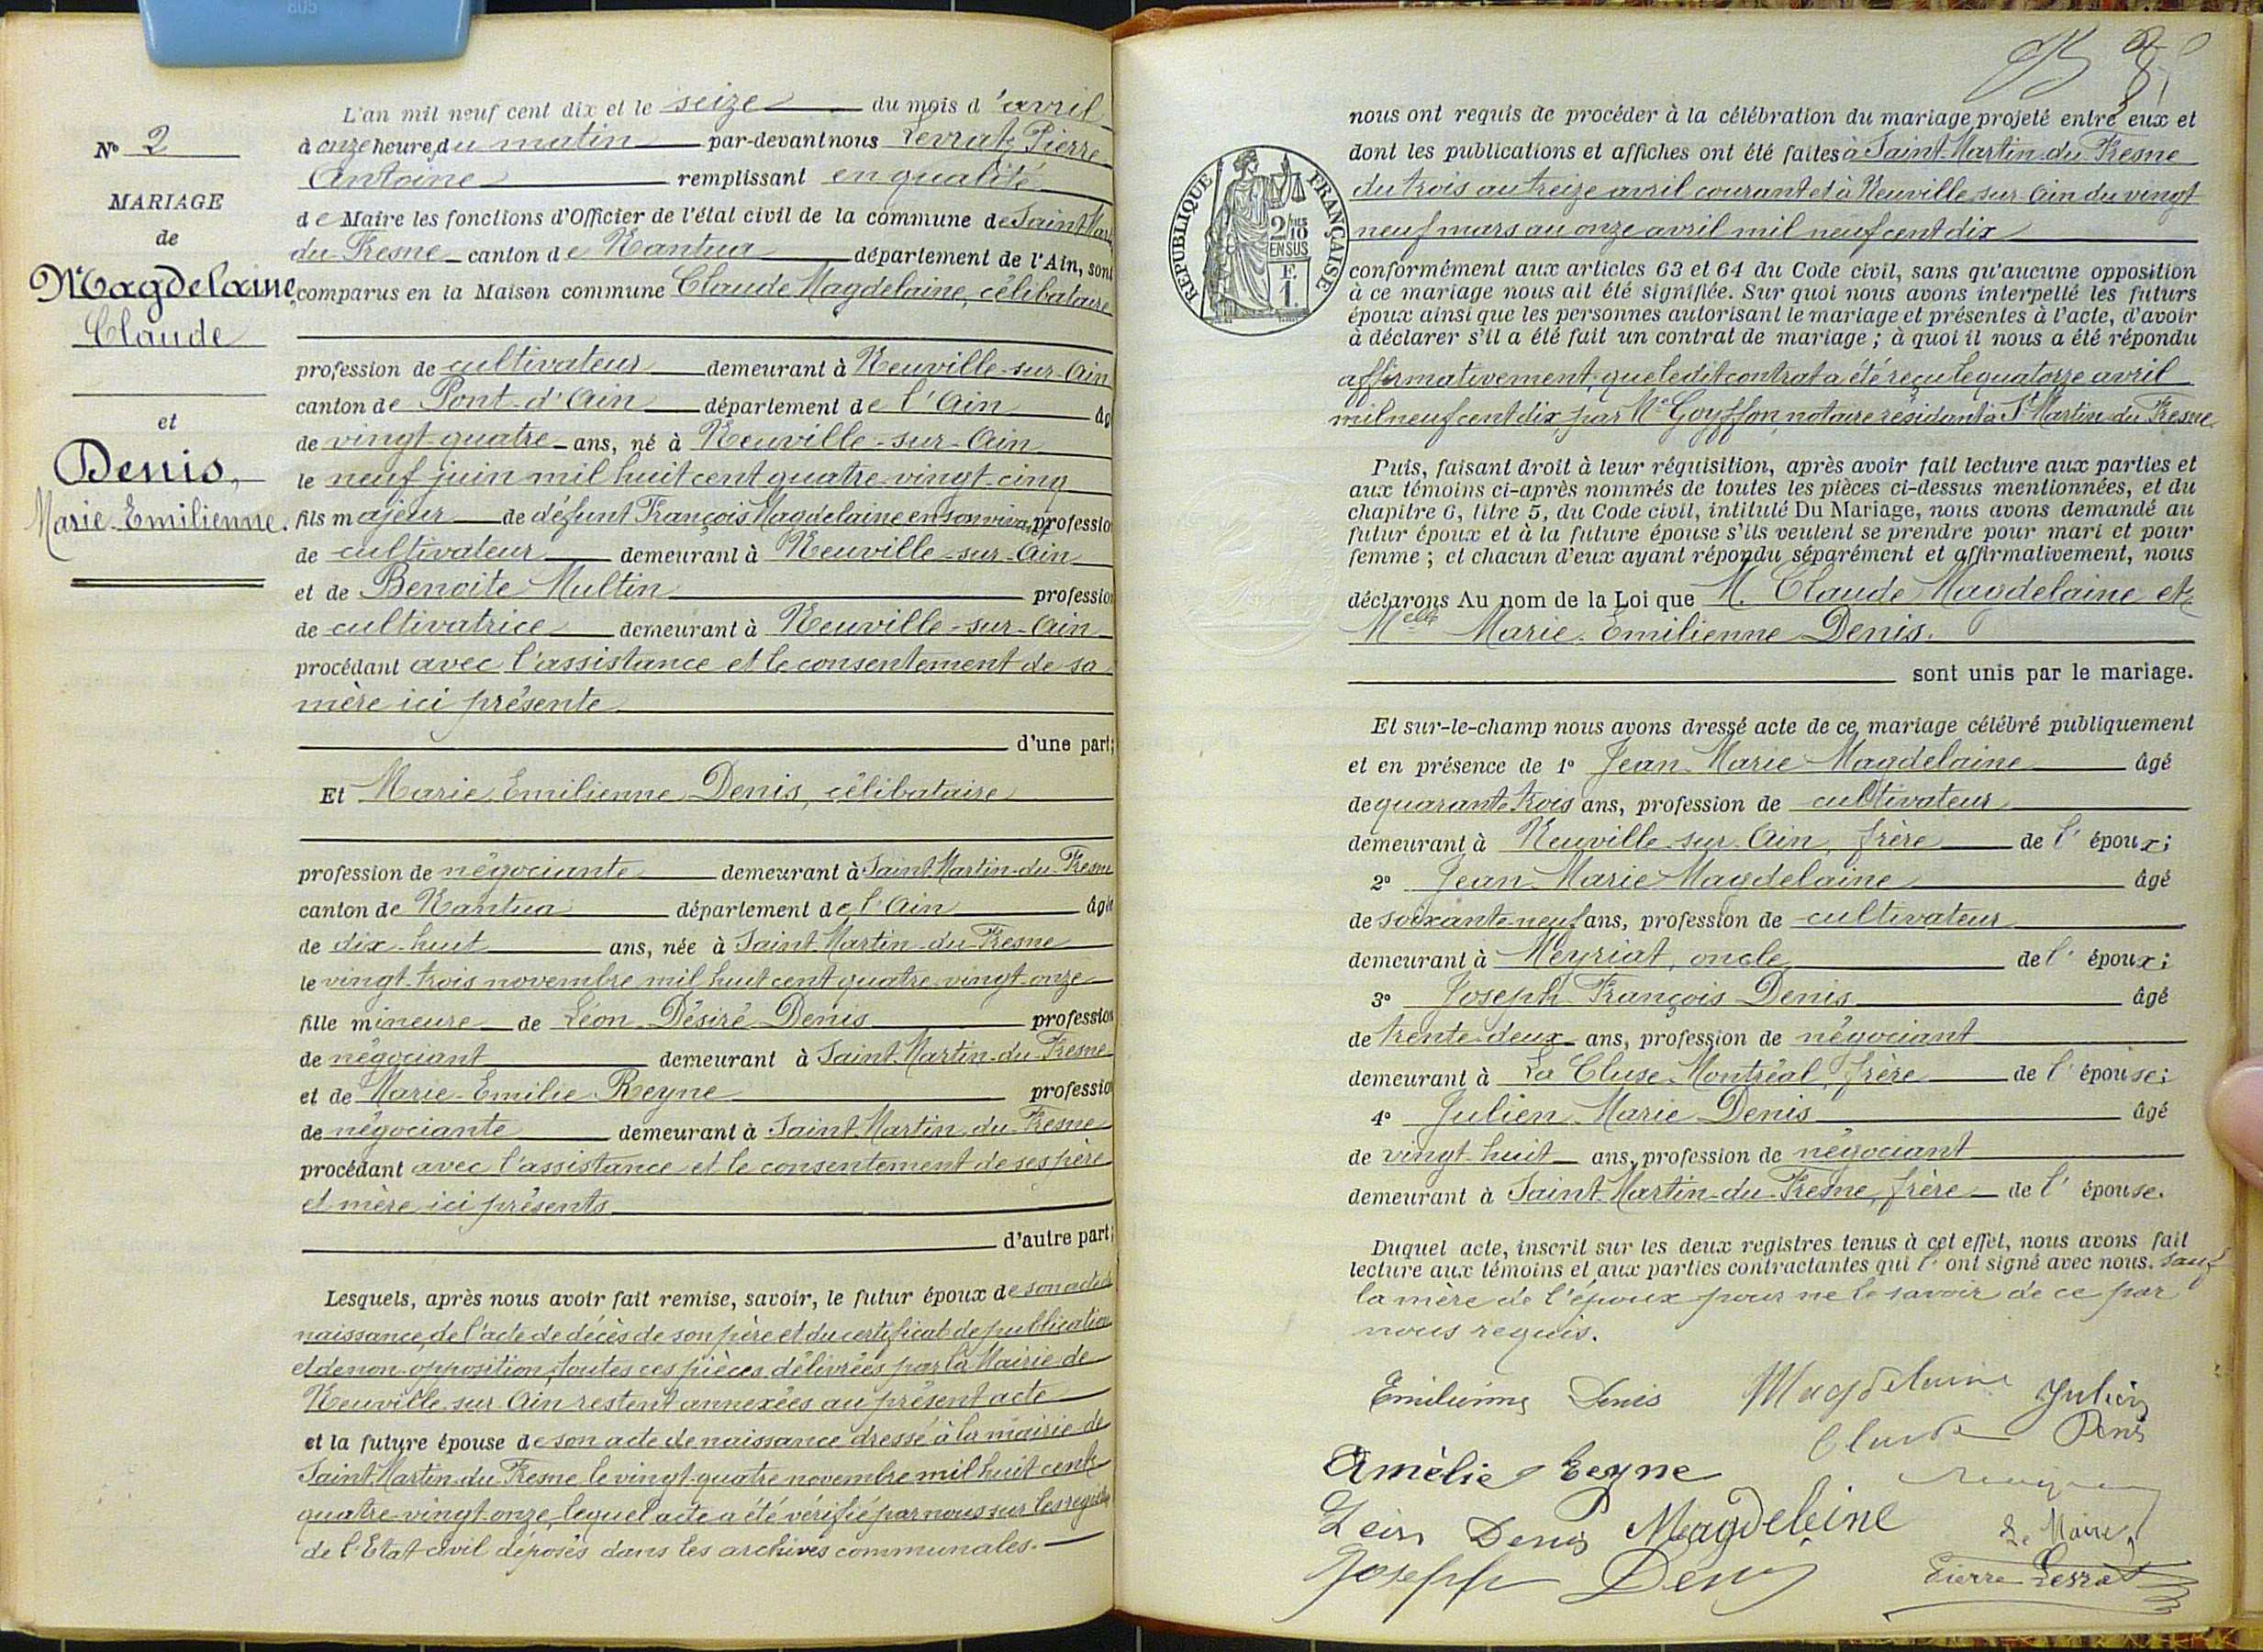 N° 2
MARIAGE
de
Magdelaine,
Claude
et
Denis,
Marie-Emilienne.
L'an mil neuf cent dix et le seize du mois d'avril
à onze heures du matin par-devant nous Levrat, Pierre
Antoine remplissant en qualité
de Maire les fonctions d'Officier de l'état civil de la commune de Saint Mart
du-Fresne canton de Nantua département de l'Ain, sont
comparus en la Maison commune Claude Magdelaine, célibataire
profession de cultivateur demeurant à Neuville-sur-Ain
canton de Pont-d'Ain département de l'Ain âg
de vingt-quatre ans, né à Neuville-sur-Ain
le neuf juin mil huit cent quatre-vingt-cinq
fils majeur de défunt François Magdelaine en son vivant professio
de cultivateur demeurant à Neuville-sur-Ain
et de Benoite Multin profession
de cultivatrice demeurant à Neuville-sur-Ain
procédant avec l'assistance et le consentement de sa
mère ici présente
d'une part;
Et Marie Emilienne Denis, célibataire
profession de négociante demeurant à Saint Martin-du-Fresne
canton de Nantua département de l'Ain âgée
de dix-huit ans, née à Saint-Martin-du-Fresne
le vingt-trois novembre mil huit cent quatre-vingt-onze
fille mineure de Léon Désiré Denis profession
de négociant demeurant à Saint-Martin-du-Fresne
et de Marie-Emilie Reyne professio
de négociante demeurant à Saint-Martin-du-Fresne
procédant avec l'assistance et le consentement de ses père
et mère ici présents
d'autre part;
Lesquels, après nous avoir fait remise, savoir, le futur époux de son acte de
naissance, de l'acte de décès de son père et du certificat de publication
et de non-opposition, toutes ces pièces délivrées par la Mairie de
Neuville sur Ain restent annexées au présent acte
et la future épouse de son acte de naissance dressé à la mairie de
Saint-Martin-du-Fresne le vingt-quatre novembre mil huit cent
quatre-vingt-onze, lequel acte a été vérifié par nous sur les registres
de l'Etat civil déposés dans les archives communales.
nous ont requis de procéder à la célébration du mariage projeté entre eux et
dont les publications et affiches ont été faites à Saint-Martin-du-Fresne
du trois au treize avril courant et à Neuville-sur-Ain du vingt
neuf mars au onze avril mil neuf cent dix
RÉPUBLIQUE FRANÇAISE
2/10 EN SUS
F. 1.
conformément aux articles 63 et 64 du Code civil, sans qu'aucune opposition
à ce mariage nous ait été signifiée. Sur quoi nous avons interpellé les futurs
époux ainsi que les personnes autorisant le mariage et présentes à l'acte, d'avoir
à déclarer s'il a été fait un contrat de mariage; à quoi il nous a été répondu
affirmativement, que ledit contrat a été reçu le quatorze avril
mil neuf cent dix par Me Goyffon, notaire résidant à St Martin du Fresne
Puis, faisant droit à leur réquisition, après avoir fait lecture aux parties et
aux témoins ci-après nommés de toutes les pièces ci-dessus mentionnées, et du
chapitre 6, titre 5, du Code civil, intitulé Du Mariage, nous avons demandé au
futur époux et à la future épouse s'ils veulent se prendre pour mari et pour
femme; et chacun d'eux ayant répondu séparément et affirmativement, nous
déclarons Au nom de la Loi que M. Claude Magdelaine et
Melle Marie-Emilienne Denis.
sont unis par le mariage.
Et sur-le-champ nous avons dressé acte de ce mariage célébré publiquement
et en présence de 1° Jean-Marie Magdelaine âgé
de quarante trois ans, profession de cultivateur
demeurant à Neuville-sur-Ain, frère de l'époux;
2° Jean-Marie Magdelaine âgé
de soixante-neuf ans, profession de cultivateur
demeurant à Meyriat, oncle de l'époux;
3° Joseph-François Denis âgé
de trente-deux ans, profession de négociant
demeurant à La Cluse-Montréal, frère de l'épouse;
4° Julien-Marie Denis âgé
de vingt-huit ans, profession de négociant
demeurant à Saint-Martin-du-Fresne, frère de l'épouse.
Duquel acte, inscrit sur les deux registres tenus à cet effet, nous avons fait
lecture aux témoins et aux parties contractantes qui l'ont signé avec nous. sauf
la mère de l'époux pour ne le savoir de ce par
nous requis.
Emilienne Denis Magdelaine Julien
Claude Denis
Amélie Reyne
Léon Denis Magdeleine Le Maire,
Joseph Denis Pierre Levrat